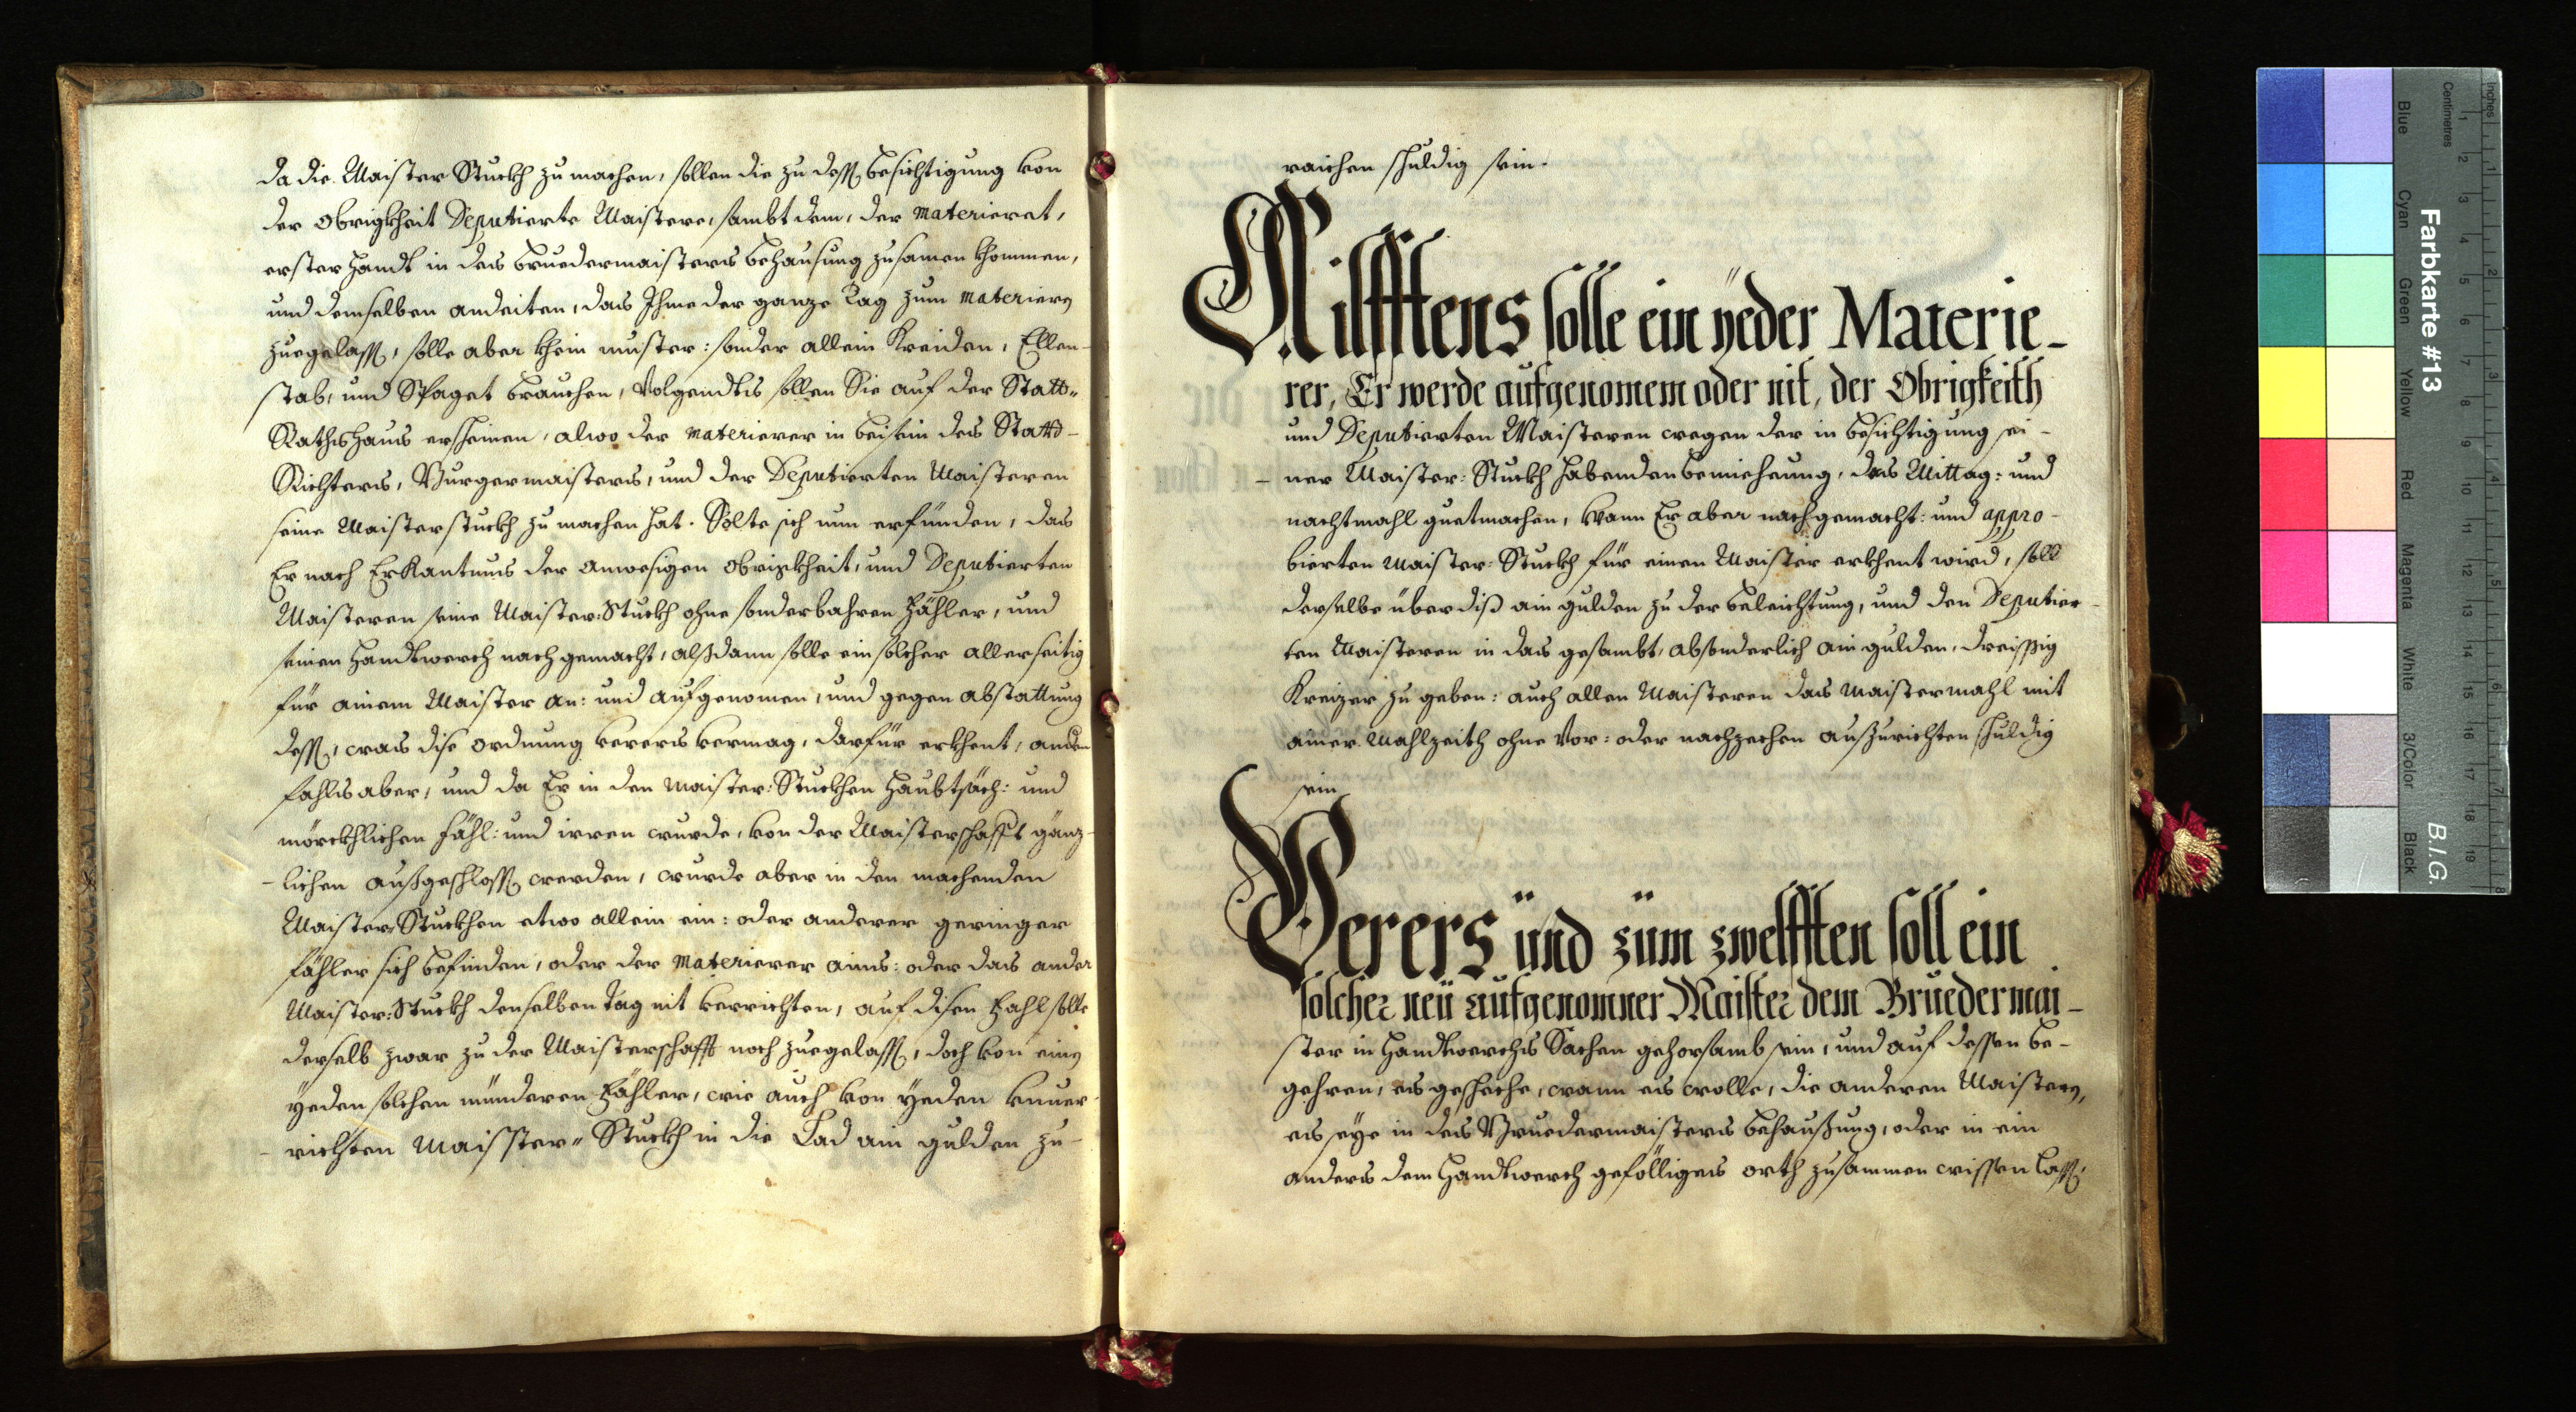 da die Maister Stuckh zu machen, sollen die zu dess besichtigung von
der Obrigkheit Deputierte Maistere, sambt dem, der materieret,
erster Handt in des Bruedermaisters behausung zusamen khommen,
und demselben andeiten, das Ihme der ganze Tag zum materiern
zuegelass, solle aber khein muster: sonder allein Kreiden, Ellen-
stab, und Spaget brauchen, Volgendts sollen Sie auf der Statt-
Rathshaus erscheinen, alwo der materierer in beisein des Statt-
Richters, Burgermaisters, und der Deputierten Maisteren
seine Maisterstuckh zu machen hat. Solte sich nun erfünden, das
Er nach Erkantnus der anwesigen Obrigkheit, und Deputierten
Maisteren seine Maister:Stuckh ohne sonderbahren Fähler, und
seinen Handtwerch nach gemacht, alßdann solle ein solcher allerseitig
für ainem Maister an: und aufgenomen, und gegen abstattung
dess, was dise ordnung verers vermag, darfür erkhent, andern
fahls aber, und da Er in den Maister:Stuckhen Haubtsäch: und
mörckhlichen Fähl: und irren wurde, von der Maisterschafft gänz-
-lichen außgeschloss werden, wurde aber in den machenden
Maister:Stuckhen etwo allein ein: oder anderer geringer
Fähler sich befinden, oder der Materierer ains: oder das ander
Maister:Stuckh denselben Tag nit verrichten, auf disen Fahl solle
derselb zwar zu der Maisterschafft noch zuegelass, doch von einen
yeden solchen münderen Fähler, wie auch von yeden unver-
-richten Maisster-Stuckh in die Lad ain gulden zu-
raichen schuldig sein.
Ailfftens solle ein yeder Materie-
rer, Er werde aufgenomem oder nit, der Obrigkeith
und Deputierten Maisteren wegen der in besichtigung sei-
-ner Maister:Stuckh habenden bemiehung, das Mittag: und
nachtmahl guetmachen, Wann Er aber nach gemacht: und appro-
bierten Maister:Stuckh für einen Maister erkhent wird, soll
derselbe über diß ain gulden zu der beleichtung, und den Deputier-
ten Maisteren in das gesambt, absonderlich ain gulden, dreissig
Kreizer zu geben: auch allen Maisteren das Maistermahl mit
ainer Mahlzeith ohne Vor: oder nachzechen außzurichten schuldig
sein
Verers und zum zwelfften soll ein
solcher neü aufgenomner Maister dem Bruedermai-
ster in Handtwerchs Sachen gehorsamb sein, und auf dessen be-
gehren, es gescheche, wann es wolle, die anderen Maistern,
es seye in des Bruedermaisters behaußung, oder in ein
anders dem Handtwerch gefölliges orth zusammen wissen lass,
Farbkarte #13
B.I.G.
Blue
Cyan
Green
Yellow
Red
Magenta
White
3/Color
Black
Centimetres
Inches